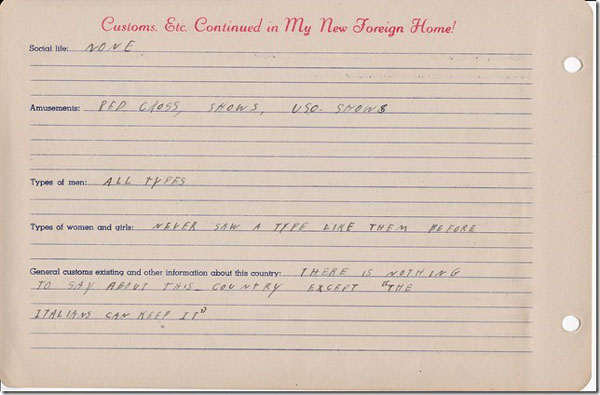 Customs, Etc. Continued in My New Foreign Home!
Social life: NONE.
Amusements: RED CROSS, SHOWS, USO-SHOWS
Types of men: ALL TYPES.
Types of women and girls: NEVER SAW A TYPE LIKE THEM BEFORE
General customs existing and other information about this country: THERE IS NOTHING
TO SAY ABOUT THIS COUNTRY EXCEPT "THE
ITALIANS CAN KEEP IT"